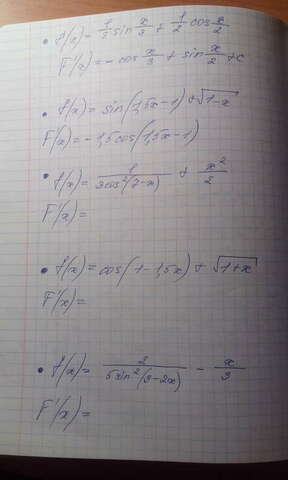 • f(x) = 1/3 sin x/3 + 1/2 cos x/2
F(x) = - cos x/3 + sin x/2 + c
• f(x) = sin(1,5x-1) + √1-x
F(x) = -1,5cos(1,5x-1)
• f(x) = 1/3cos²(7-x) + x²/2
F(x) =
• f(x) = cos(1-1,5x) + √1+x
F(x) =
• f(x) = 2/5sin²(3-2x) - x/3
F(x) =